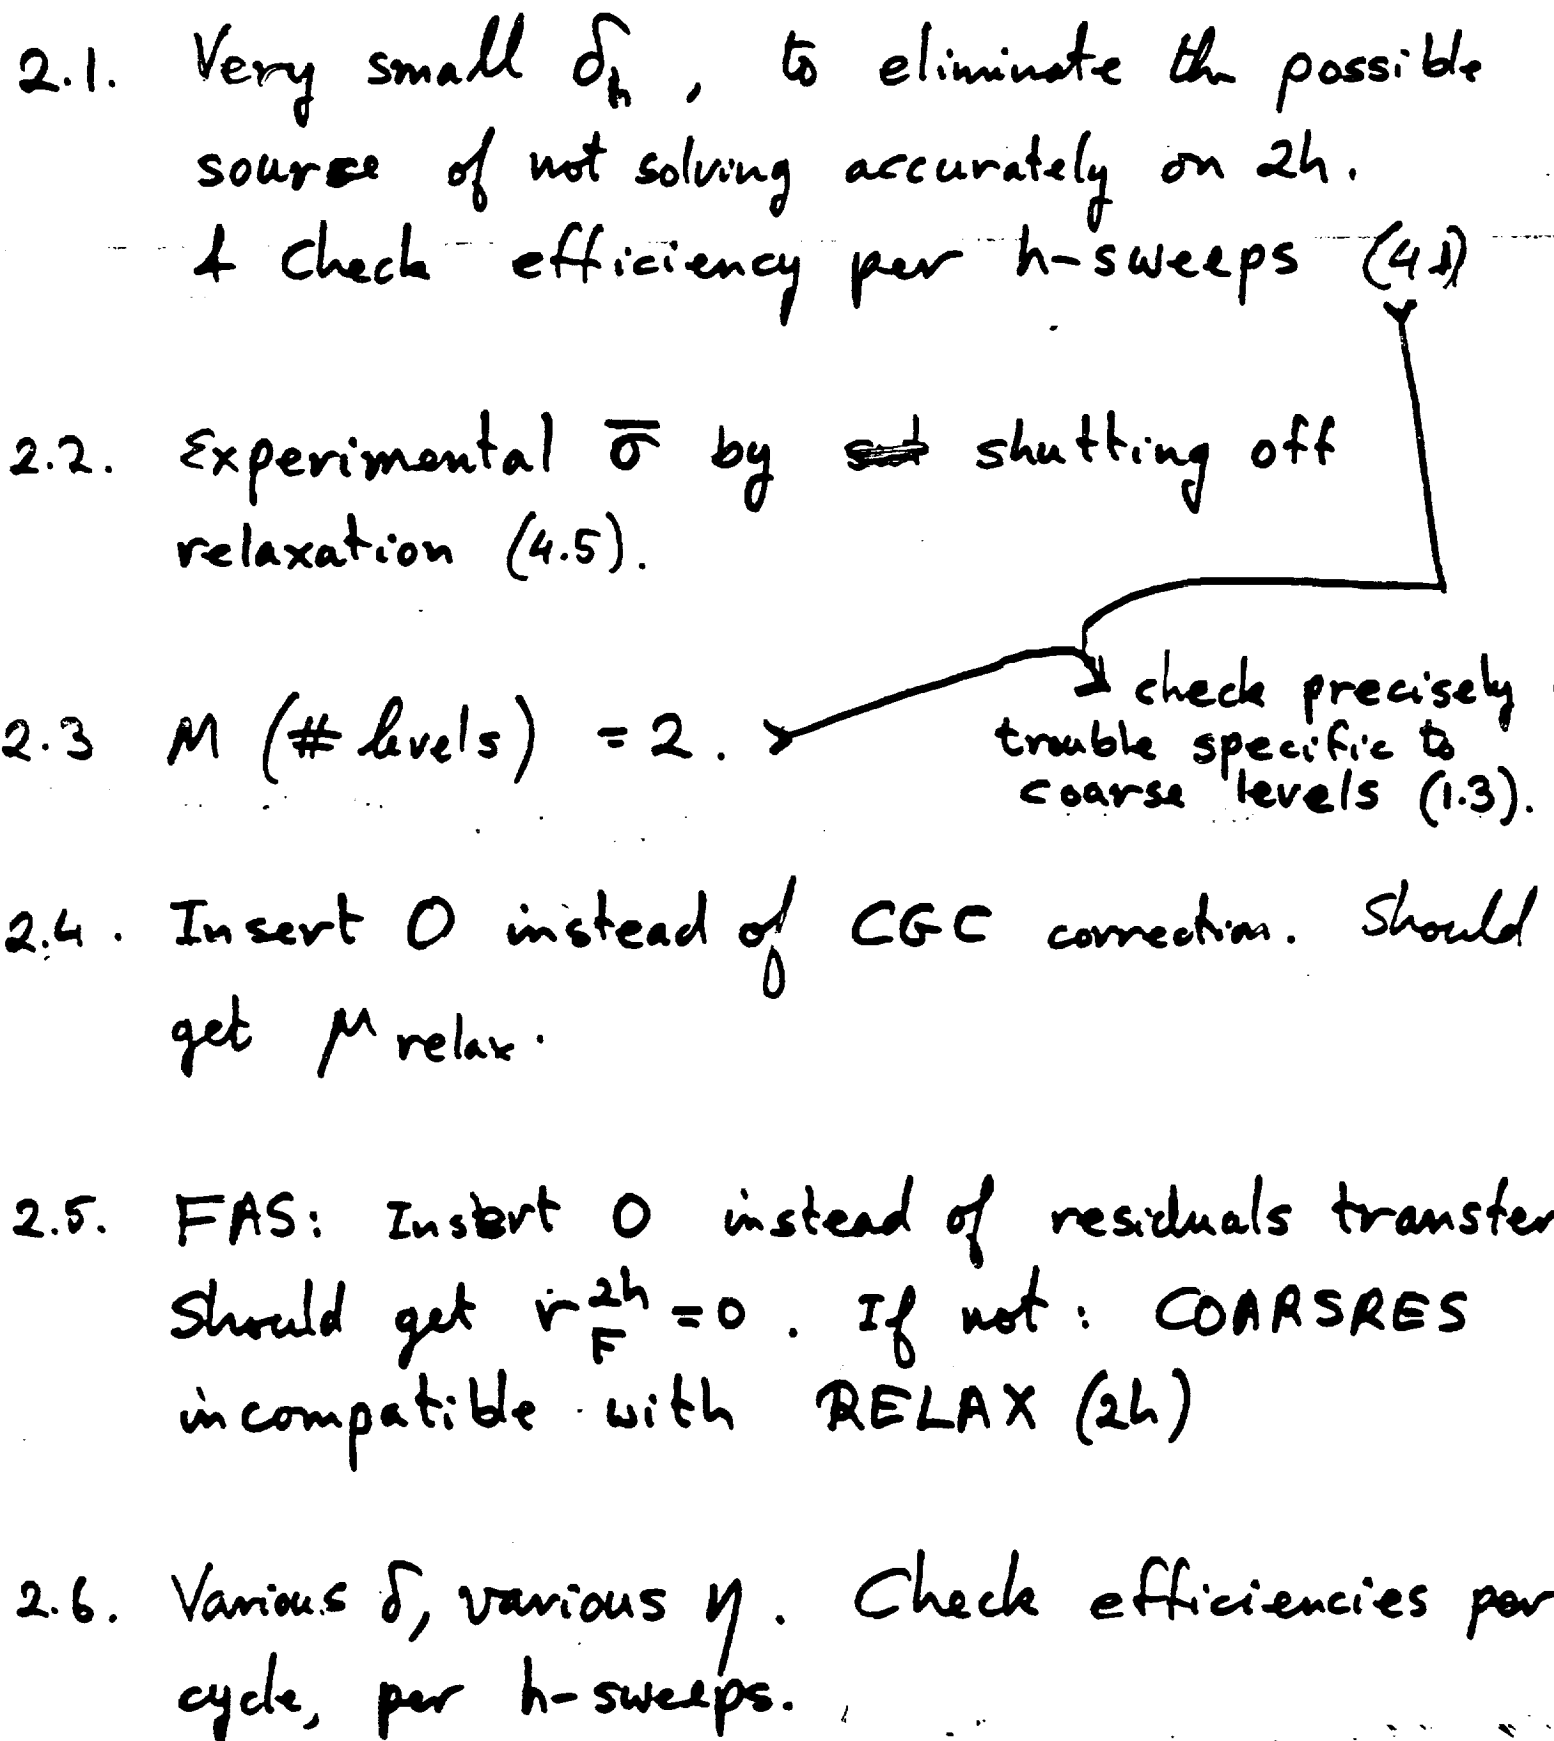 2.1. Very small δₕ, to eliminate the possible
source of not solving accurately on 2h.
& Check efficiency per h-sweeps
2.2. Experimental σ̅ by shutting off
relaxation (4.5).
2.3 M (# levels) = 2.
check precisely
trouble specific to
coarse levels (1.3).
2.4. Insert 0 instead of CGC correction. Should
get μ relax.
2.5. FAS: Insert 0 instead of residuals transfer
Should get r_F^2h = 0. If not: COARSRES
incompatible with RELAX (2h)
2.6. Various δ, various η. Check efficiencies per
cycle, per h-sweeps.